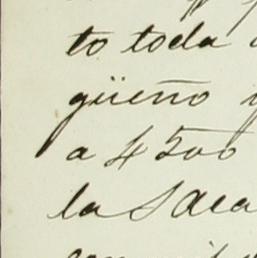 to toda
güeño y
a 4500
la Saca